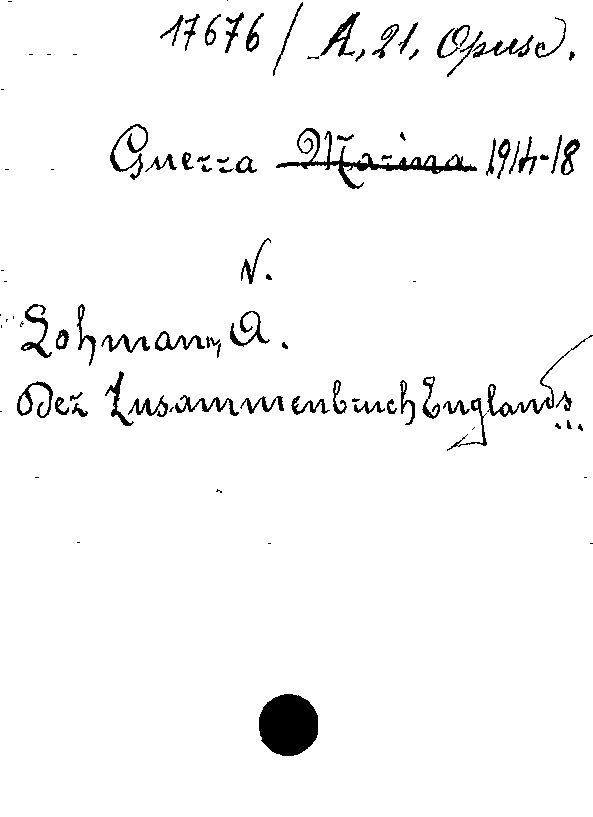 17676 / A, 21, Opusc.
Guerra Marina 1914-18
V.
Lohmann, A.
Der Zusammenbruch Englands...